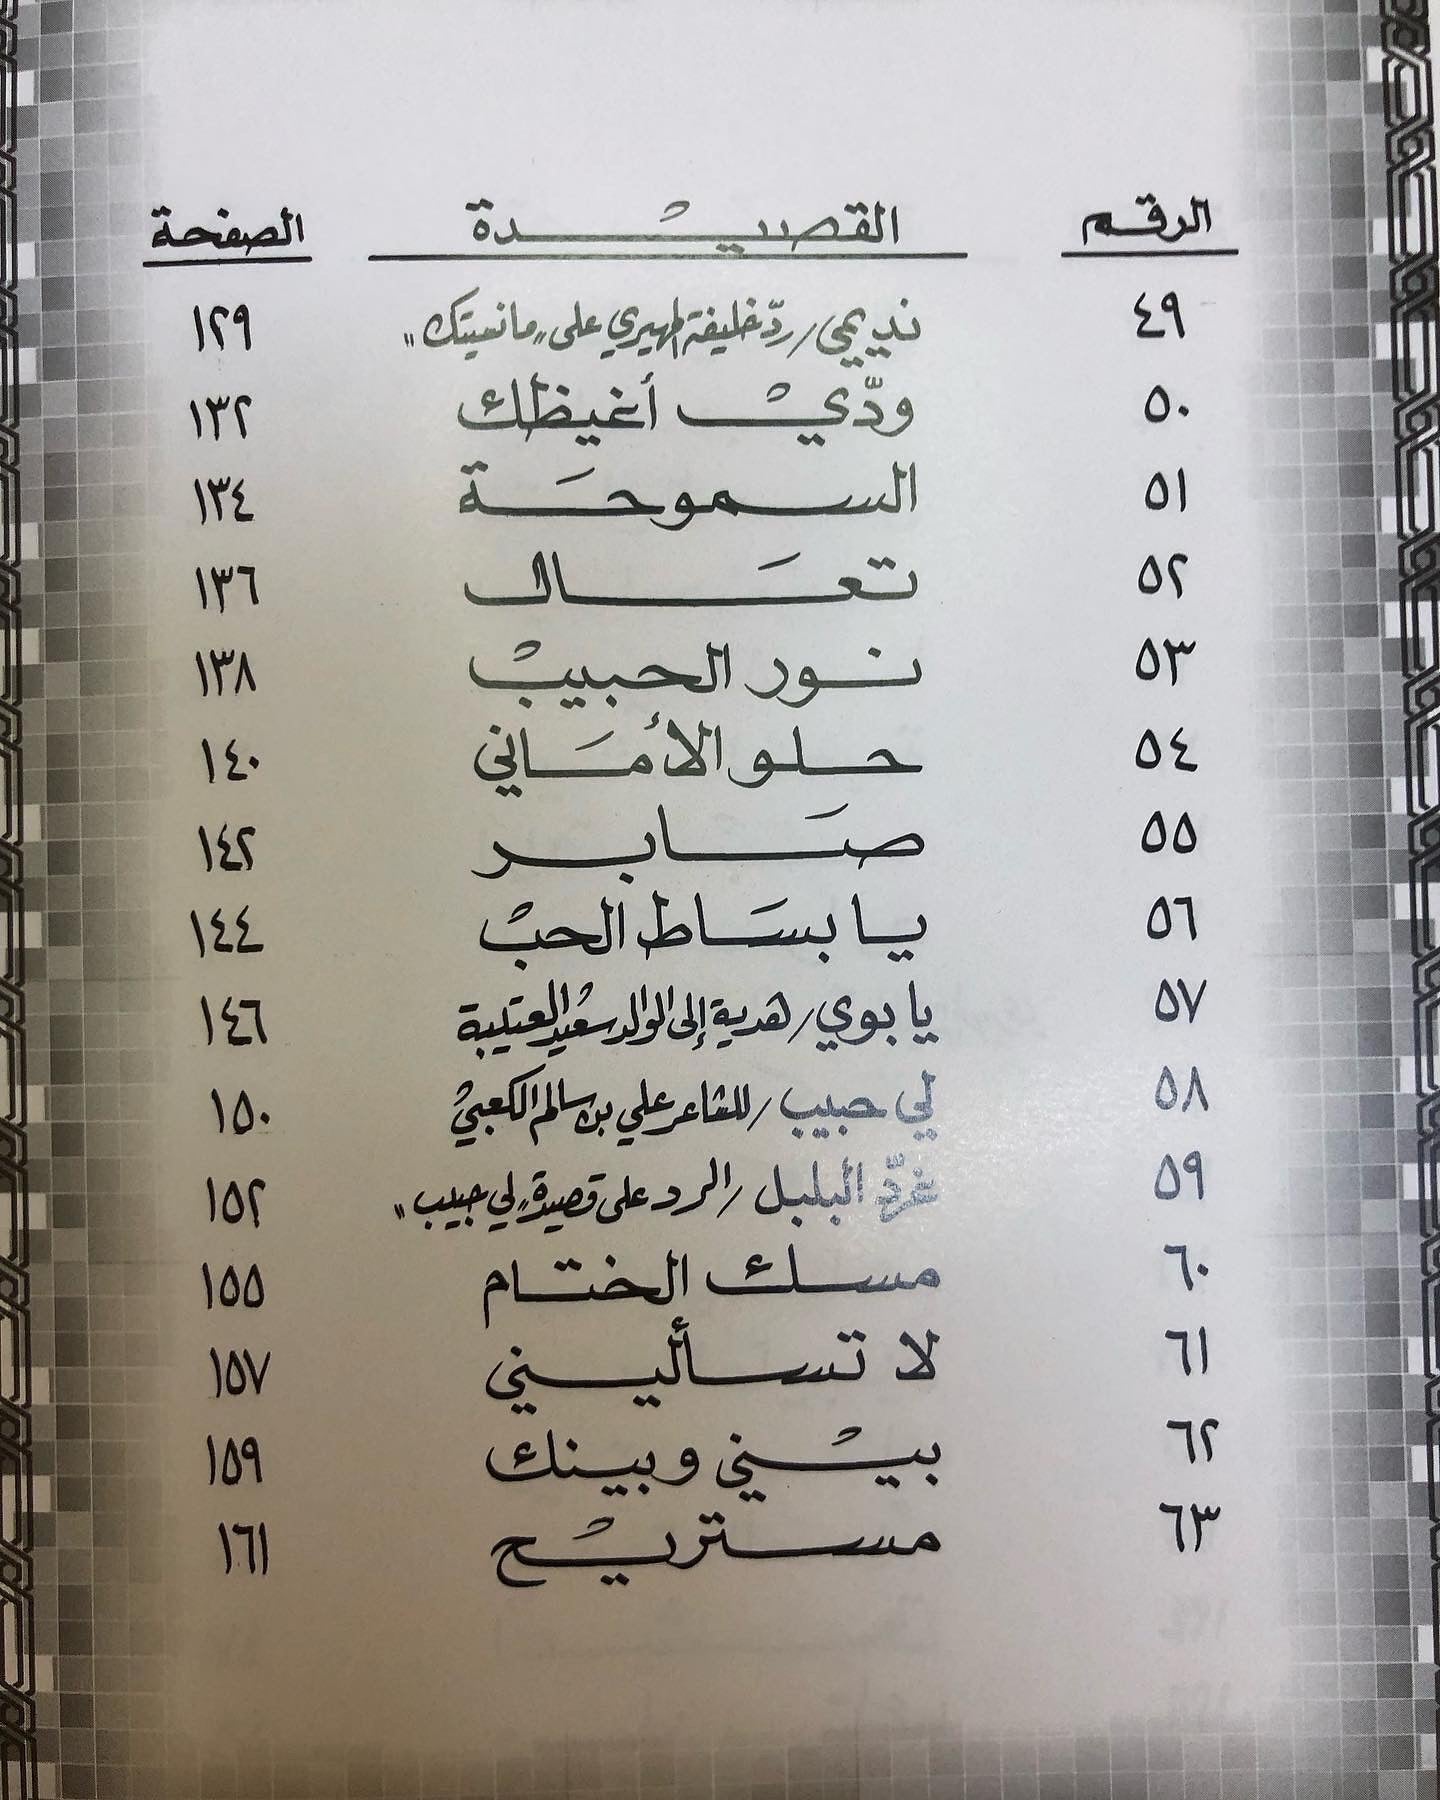 الرقم القصيدة الصفحة
٤٩ نديمي / ردّ خليفة المهيري على "ما نسيتك" ١٢٩
٥٠ ودّيْ أغيظك ١٣٢
٥١ السموحَة ١٣٤
٥٢ تعَال ١٣٦
٥٣ نور الحبيبْ ١٣٨
٥٤ حلو الأمَاني ١٤٠
٥٥ صَابر ١٤٢
٥٦ يا بسَاط الحبْ ١٤٤
٥٧ يا بوي / هدية إلى الوالد سعيْد العتيبة ١٤٦
٥٨ لي حبيب / للشاعر علي بن سالم الكعبيْ ١٥٠
٥٩ غرّد البلبل / الرد على قصيدة "لي حبيب" ١٥٢
٦٠ مسك الختام ١٥٥
٦١ لا تسأليني ١٥٧
٦٢ بيْني وبينك ١٥٩
٦٣ مستريْح ١٦١